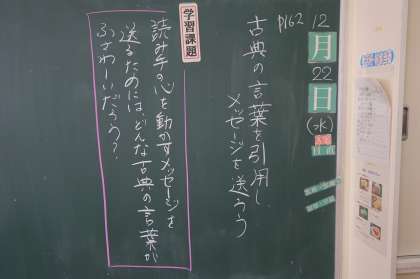 12月22日(水)
日直
p162
古典の言葉を引用し、
メッセージを送ろう
学習課題
読み手の心を動かすメッセージを
送るためには、どんな古典の言葉が
ふさわしいだろう?